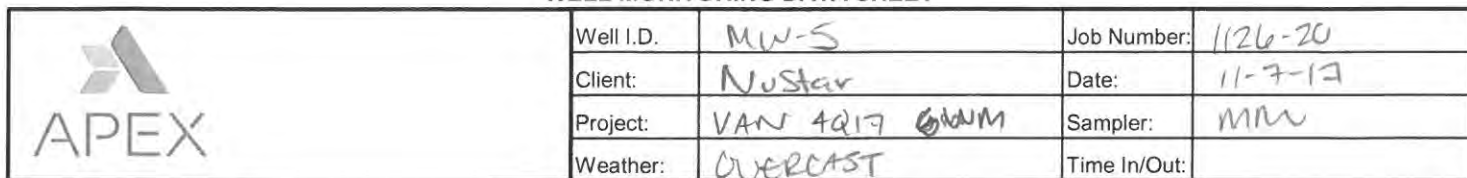 Well I.D. MW-5 Job Number: 1126-20
Client: NuStar Date: 11-7-17
APEX
Project: VAN 4Q17 GWM Sampler: MM
Weather: OVERCAST Time In/Out: